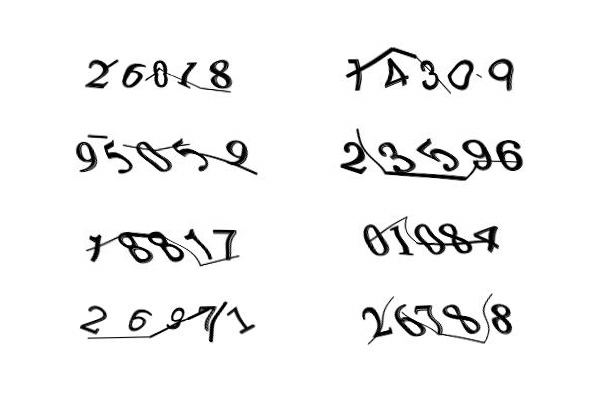 26018 74309
95059 23596
18817 01084
26971 26788